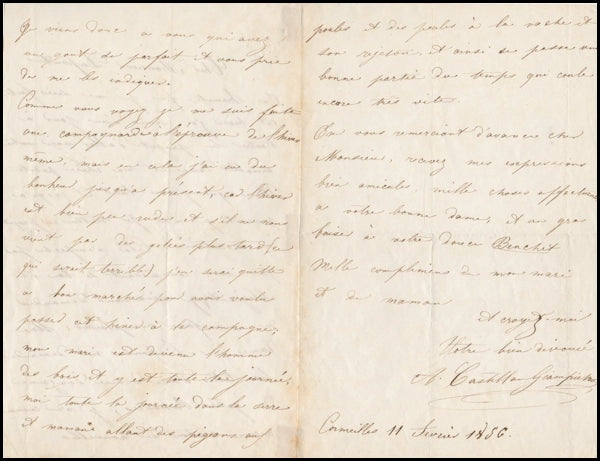 Je viens donc a vous qui avez
un gout si parfait et vous prie
de me les indiquer.
Comme vous voyez je me suis faite
une campagnarde a l'épreuve de l'hiver
même, mais en cela j'ai eu du
bonheur jusqu'a présent, car l'hiver
est bien peu rude et s'il ne nous
vient pas des gelées plus tard (ce
qui serait terrible) j'en serai quitte
a bon marché pour avoir voulu
passer cet hiver à la campagne;
mon mari est devenu l'homme
des bois et y est toute la journée,
moi toute la journée dans la serre
et maman allant des pigeons aux
poules et des poules à la vache et
son rejeton, et ainsi se passe une
bonne partie du temps qui coule
encore très vite.
En vous remerciant d'avance cher
Monsieur, recevez mes expressions
bien amicales, mille choses affectueuses
a votre bonne dame, et un gros
baiser à votre douce
Mille complimens de mon mari
et de maman
et croyez-moi
Votre bien dévouée
A. Castellan Giampietro
Cormeilles 11 Fevrier 1856.